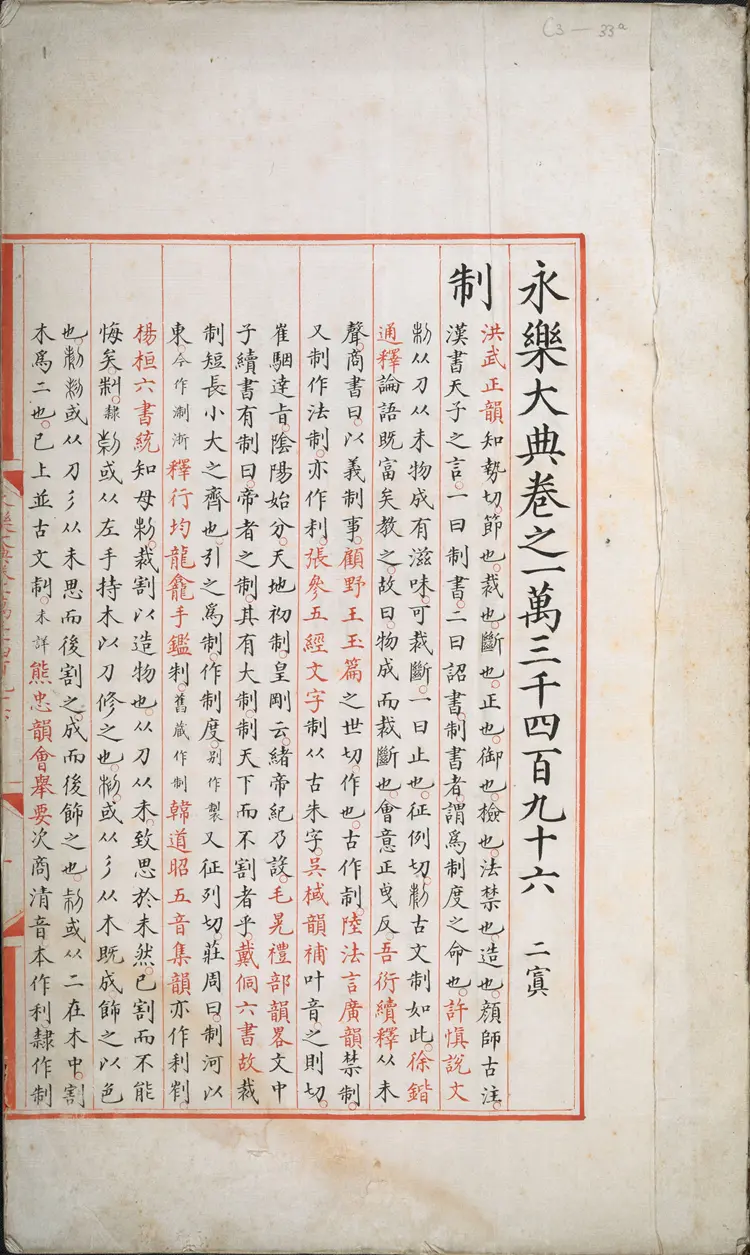 C3 — 33a
永樂大典卷之一萬三千四百九十六 二寘
制
洪武正韻知勢切節也裁也斷也正也御也檢也法禁也造也顏師古注
漢書天子之言一曰制書二曰詔書制書者謂爲制度之命也許愼說文
从刀从未物成有滋味可裁斷一曰止也征例切古文制如此徐鍇
通釋論語旣富矣教之故曰物成而裁斷也會意正曵反吾衍續釋从未
聲商書曰以義制事顧野王玉篇之世切作也古作制陸法言廣韻禁制
又制作法制亦作利張參五經文字制从古朱字吳棫韻補叶音之則切
崔駰達旨陰陽始分天地初制皇剛云緒帝紀乃設毛晃禮部韻畧文中
子續書有制曰帝者之制其有大制制天下而不割者乎戴侗六書故裁
制短長小大之齊也引之爲制作制度别作製又征列切莊周曰制河以
東今作淛浙釋行均龍龕手鑑制舊藏作制韓道昭五音集韻亦作利
楊桓六書統知母裁割以造物也从刀从未致思於未然已割而不能
悔矣隸或从左手持木以刀修之也或从彡从木旣成飾之以色
也或从刀彡从未思而後割之成而後飾之也或从二在木中割
木爲二也已上並古文制未詳熊忠韻會舉要次商清音本作利隸作制